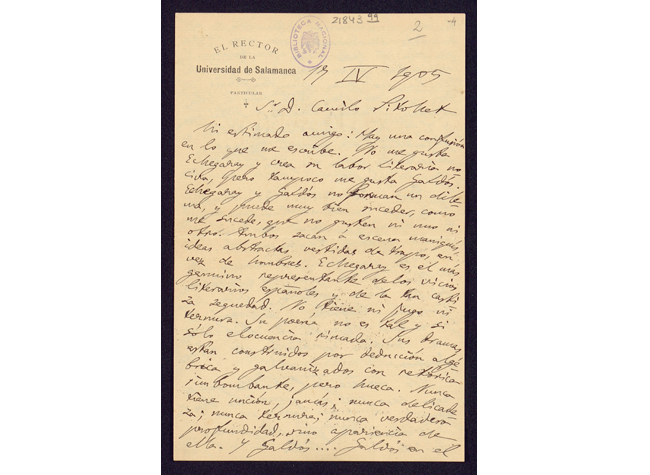 21843 99
2
BIBLIOTECA NACIONAL
EL RECTOR
DE LA
Universidad de Salamanca
PARTICULAR
IV 1905
Sr. D. Camilo Pitollet
Mi estimado amigo: Hay una confusión
en lo que me escribe. No me gusta
Echegaray y creo su labor literaria no
civa, pero tampoco me gusta Galdós.
Echegaray y Galdós no forman un dile-
ma, y puede muy bien suceder, como
me sucede, que no gusten ni uno ni
otro. Ambos sacan á escena maniquís,
ideas abstractas vestidas de trapos, en
vez de hombres. Echegaray es el más
genuino representante de los vicios
literarios españoles y de la tan casti
za sequedad. No tiene ni jugo ni
ternura. Su poesía no es tal y si
sólo elocuencia rimada. Sus dramas
están construidos por deducción algé
brica y galvanizados con retórica
rimbombante, pero hueca. Nunca
tiene unción, jamás; nunca delicade
za; nunca ternura; nunca verdadera
profundidad, sino apariencia de
ella. Y Galdós.... Galdós en el